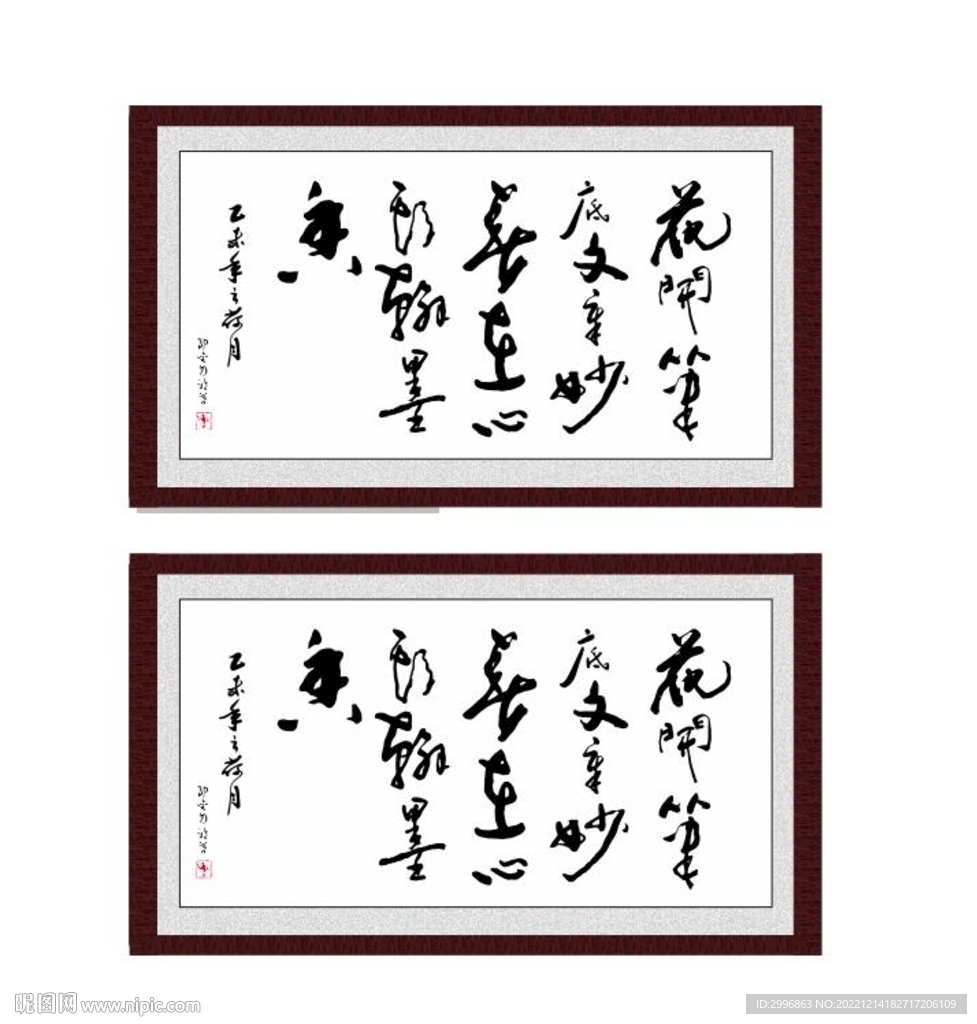 花開筆
底文章妙
在心
頭翰墨
香
乙未年之荷月
花開筆
底文章妙
在心
頭翰墨
香
乙未年之荷月
昵图网 www.nipic.com
ID:2996863 NO:20221214182717206109